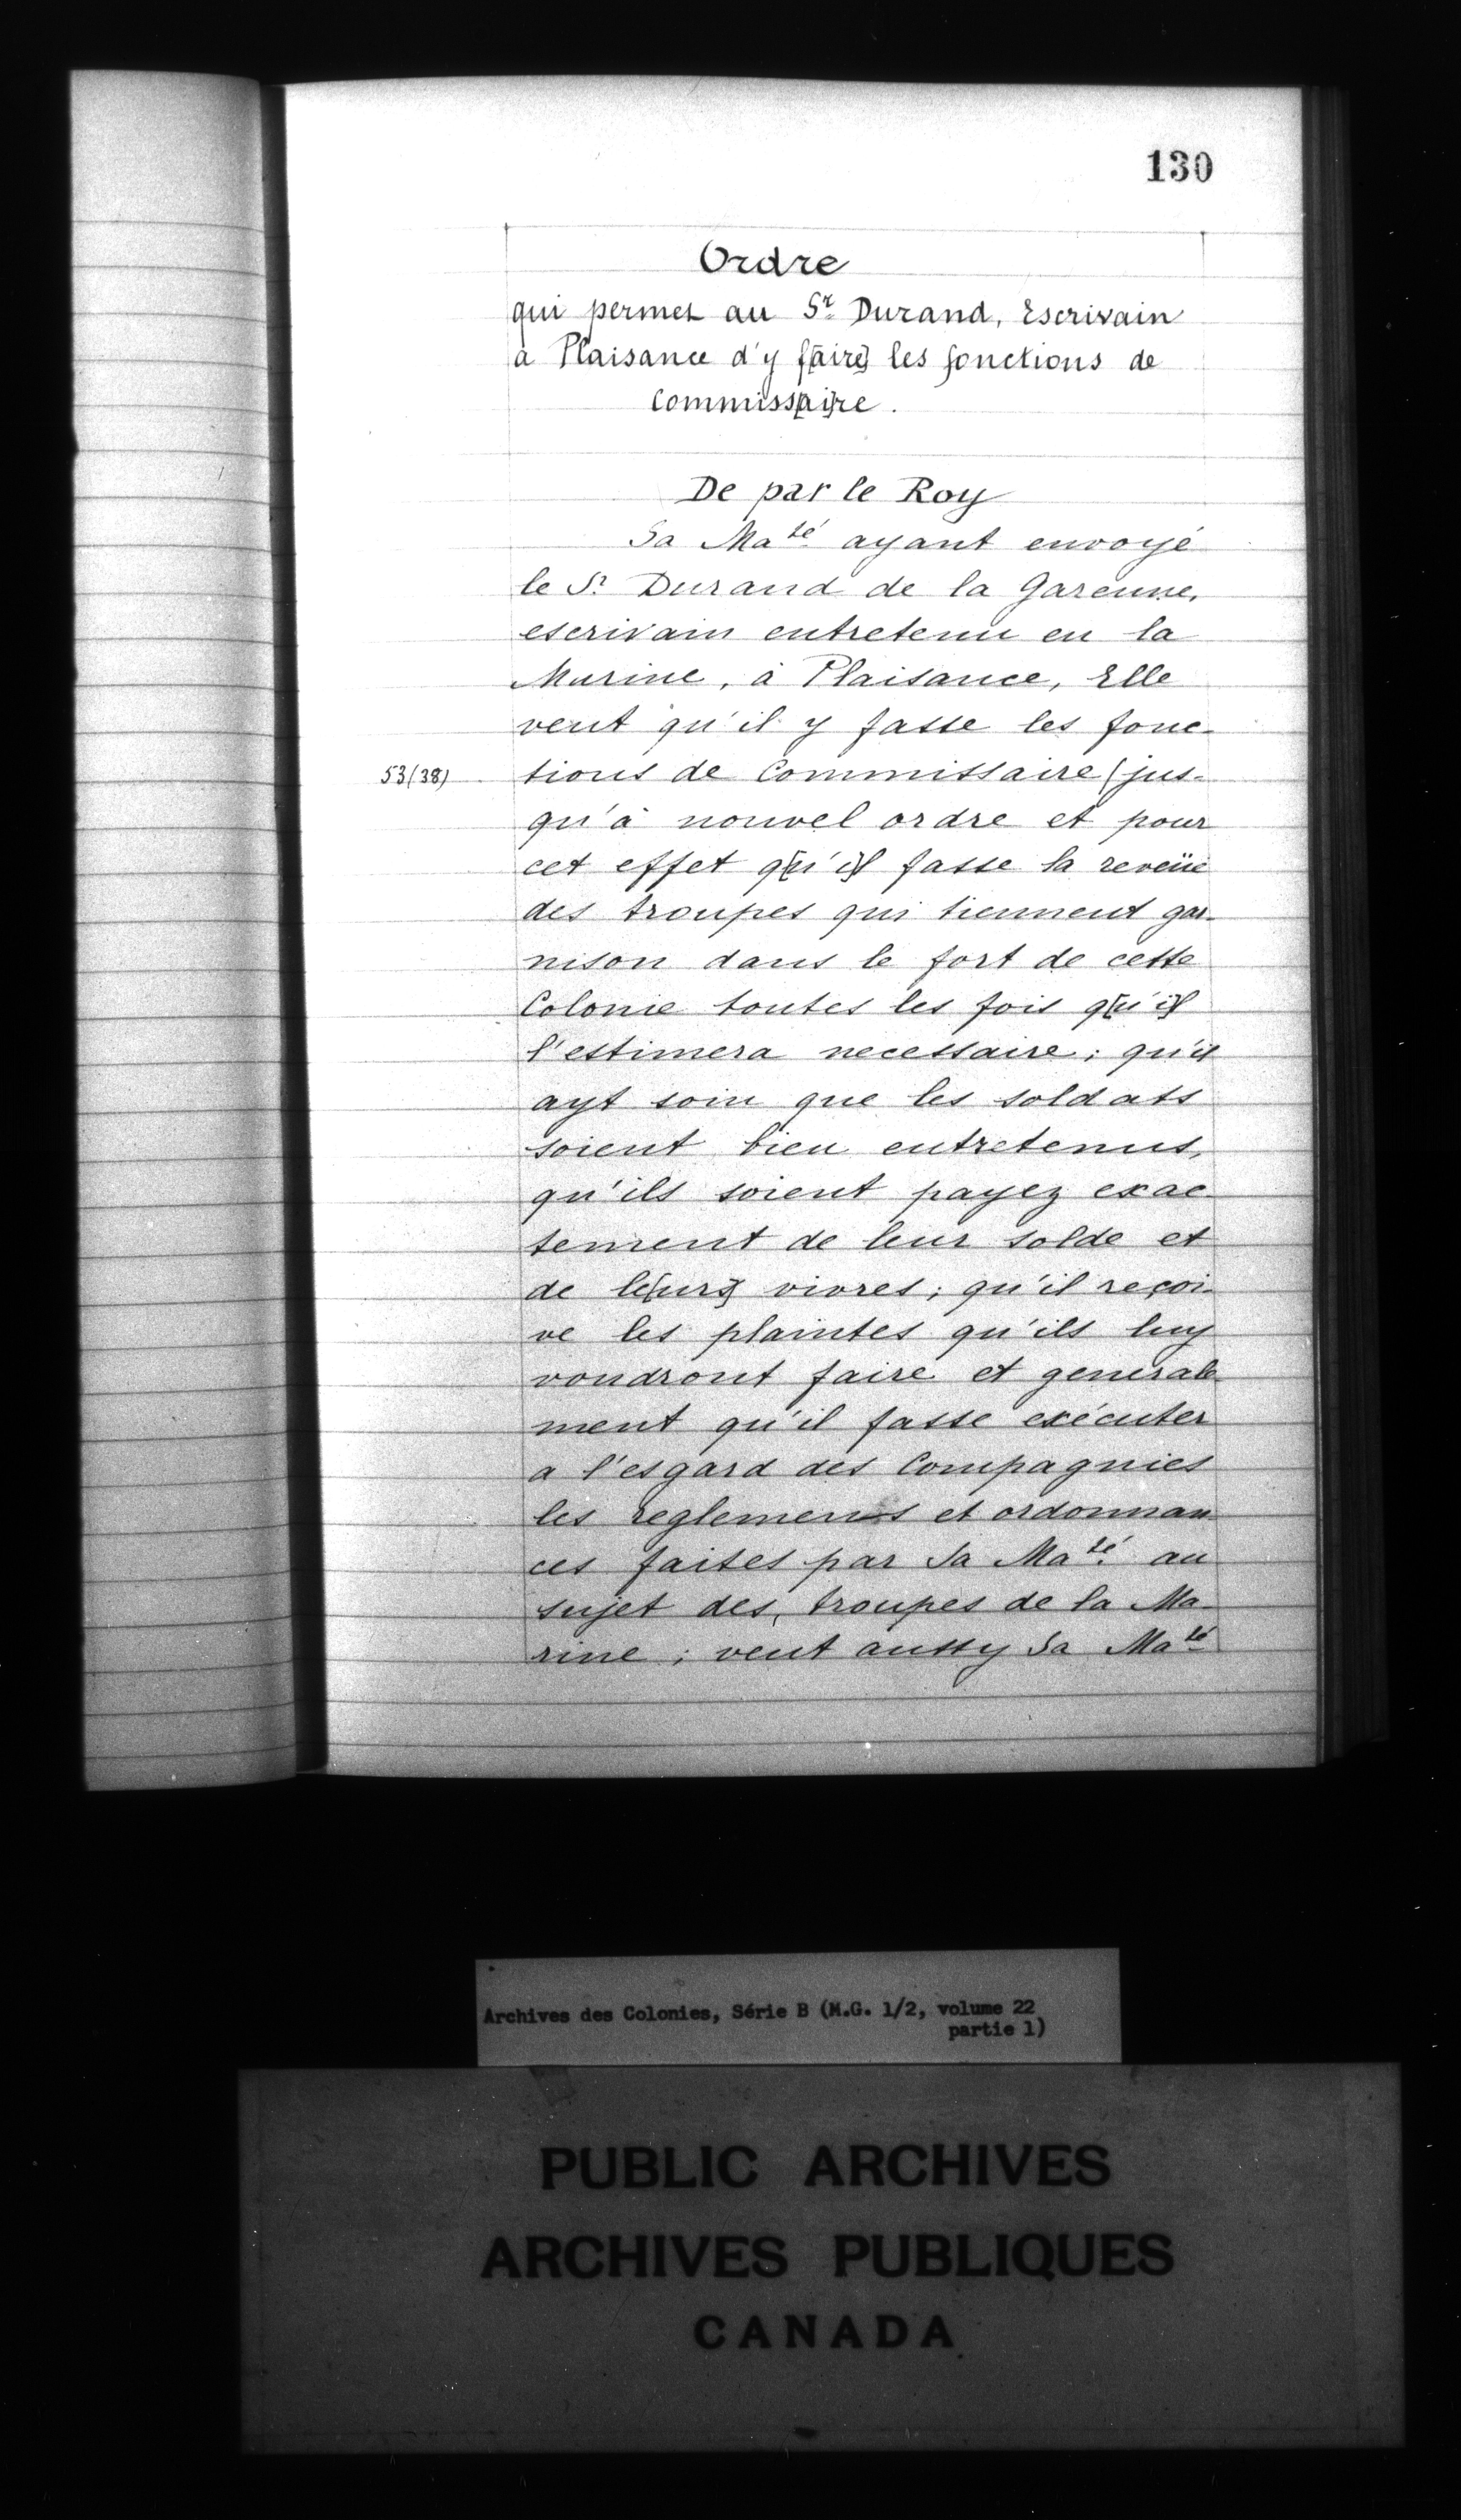 130
Ordre
qui permet au Sr. Durand, Escrivain
a Plaisance d'y f[aire] les fonctions de
Commiss[ai]re.
De par le Roy
Sa Maté ayant envoyé
le Sr Durand de la Garenne,
escrivain entretenu en la
Marine, à Plaisance, Elle
veut qu'il y fasse les fonc-
53(38) tions de Commissaire (jus-
qu'à nouvel ordre et pour
cet effet q[u'i]l fasse la reveüe
des troupes qui tiennent gar-
nison dans le fort de cette
Colonie toutes les fois q[u'i]l
l'estimera necessaire; qu'il
ayt soin que les soldats
soient bien entretenus,
qu'ils soient payez exac
tement de leur solde et
de le[urs] vivres; qu'il reçoi-
ve les plaintes qu'ils luy
voudront faire et generale
ment qu'il fasse exécuter
a l'esgard des Compagnies
les reglements et ordonnan
ces faites par Sa Maté au
sujet des troupes de la Ma-
rine; veut aussy Sa Maté
Archives des Colonies, Série B (M.G. 1/2, volume 22
partie 1)
PUBLIC ARCHIVES
ARCHIVES PUBLIQUES
CANADA